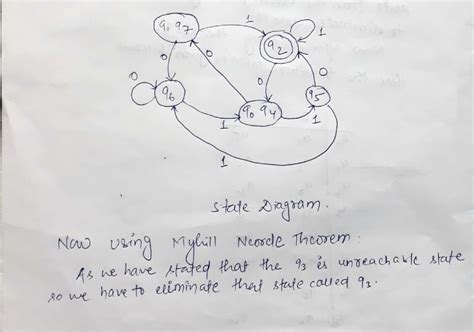 q1 q7
1
q2
1
0
0
0
0
q6
0
q0 q4
q5
1
1
1
State Diagram.
Now using Myhill Neorde Theorem :
As we have stated that the q3 is unreachable state
so we have to eliminate that state called q3.